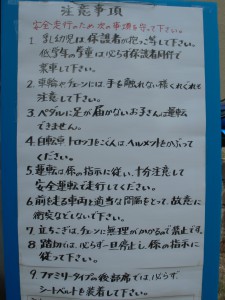 注意事項
安全走行のため次の事項を守って下さい。
1. 乳幼児は保護者が抱っこ等して下さい。
低学年の学童は必らず保護者同伴で
乗車して下さい。
2. 車輪やチェーンには手を触れない様くれぐれも
注意して下さい。
3. ペダルに足が届かないお子さんは運転
できません。
4. 自転車トロッコとごんはヘルメットをかぶって
ください。
5. 運転は係の指示に従い、十分注意して
安全運転で走行してください。
6. 前を走る車両と適当な間隔をとって、故意に
衝突などしないで下さい。
7. 立ちこぎは、チェーンに無理がかかるので禁止です。
8. 踏切では、必らず一旦停止し、係の指示に
従って下さい。
9. ファミリータイプの後部席では、必らず
シートベルトを装着して下さい。